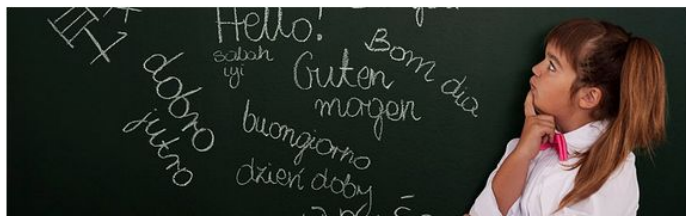 Hello!
sabah
iyi
Bom dia
Guten
mogen
dobro
jutro
buongiorno
dzień doby